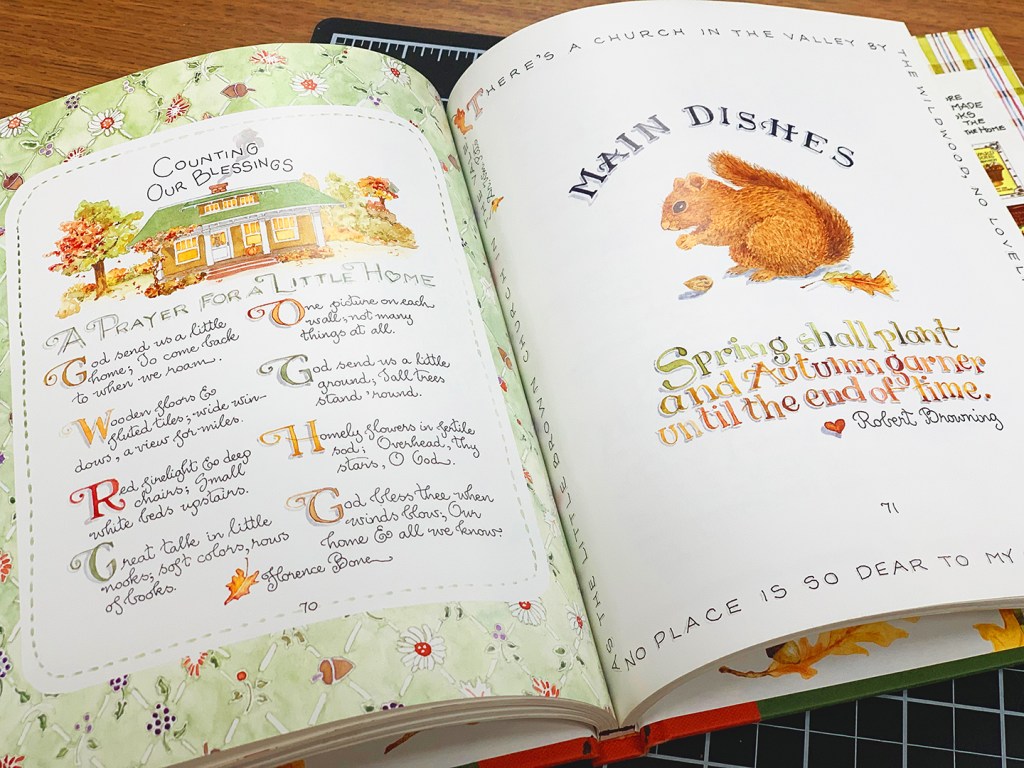 COUNTING
OUR BLESSINGS
A PRAYER FOR A LITTLE HOME
God send us a little
home; To come back
to when we roam.
Wooden floors &
fluted tiles; wide win-
dows, a view for miles.
Red firelight & deep
chairs; Small
white beds upstairs.
Great talk in little
nooks; soft colors, rows
of books.
One picture on each
wall; not many
things at all.
God send us a little
ground; Tall trees
stand 'round.
Homely flowers in fertile
sod; Overhead, thy
stars, O God.
God bless thee when
winds blow; Our
home & all we know.
Florence Bone
70
THERE'S A CHURCH IN THE VALLEY BY THE WILDWOOD, NO LOVEL
NO PLACE IS SO DEAR TO MY
AS THE LITTLE BROWN CHURCH IN
MAIN DISHES
Spring shall plant
and Autumn garner
until the end of time.
Robert Browning
71
MADE
THE
THE HOME